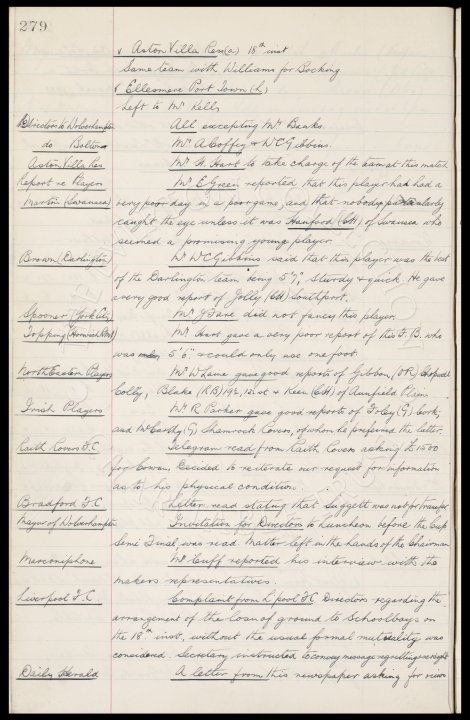 279
v Aston Villa Res(a) 18th inst
Same team with Williams for Bocking
v Ellesmere Port Town (h)
Left to Mr Kelly
Directors to Wolverhampton All excepting Mr Banks.
do Bolton Mr A Coffey & W C Gibbins.
Aston Villa Res Mr W. Hart to take charge of the team at this match
Report re Players Mr E Green reported that this player had had a
Martin (Swansea) very poor day in a poor game, and that nobody particularly
caught the eye unless it was Hanford (CH) of Swansea who
seemed a promising young player.
Brown (Darlington) Mr W C Gibbins said that this player was the best
of the Darlington team being 5'7", sturdy & quick. He gave
a very good report of Jolly (LH) Southport.
Spooner (York City) Mr did not fancy this player.
Topping (Horwich RMI) Mr Hart gave a very poor report of this F.B. who
was 5'6" & could only use one foot.
North Eastern Players Mr W Lane gave good reports of Gibbon, (OR)
Colly, Blake (RB) 19 & Keen (CH) of Annfield Plain
Irish Players Mr R Parker gave good reports of Foley (G) Cork,
and McCarthy (G) Shamrock Rovers, of whom he preferred the latter.
Raith Rovers F.C. Telegram read from Raith Rovers asking £1500
for Cowan, Decided to reiterate our request for information
as to his physical condition.
Bradford F.C Letter read stating that Suggett was not for transfer
Mayor of Wolverhampton Invitation for Directors to Luncheon before the Cup
Semi Final, was read. Matter left in the hands of the Chairman
Marconiphone Mr Cuff reported his interview with the
makers representatives.
Liverpool F.C. Complaint from L'pool F.C Directors regarding the
arrangement of the loan of ground to Schoolboys on
the 18th inst, without the usual formal mutuality was
considered. Secretary instructed to convey message regretting oversight
Daily Herald A letter from this newspaper asking for views